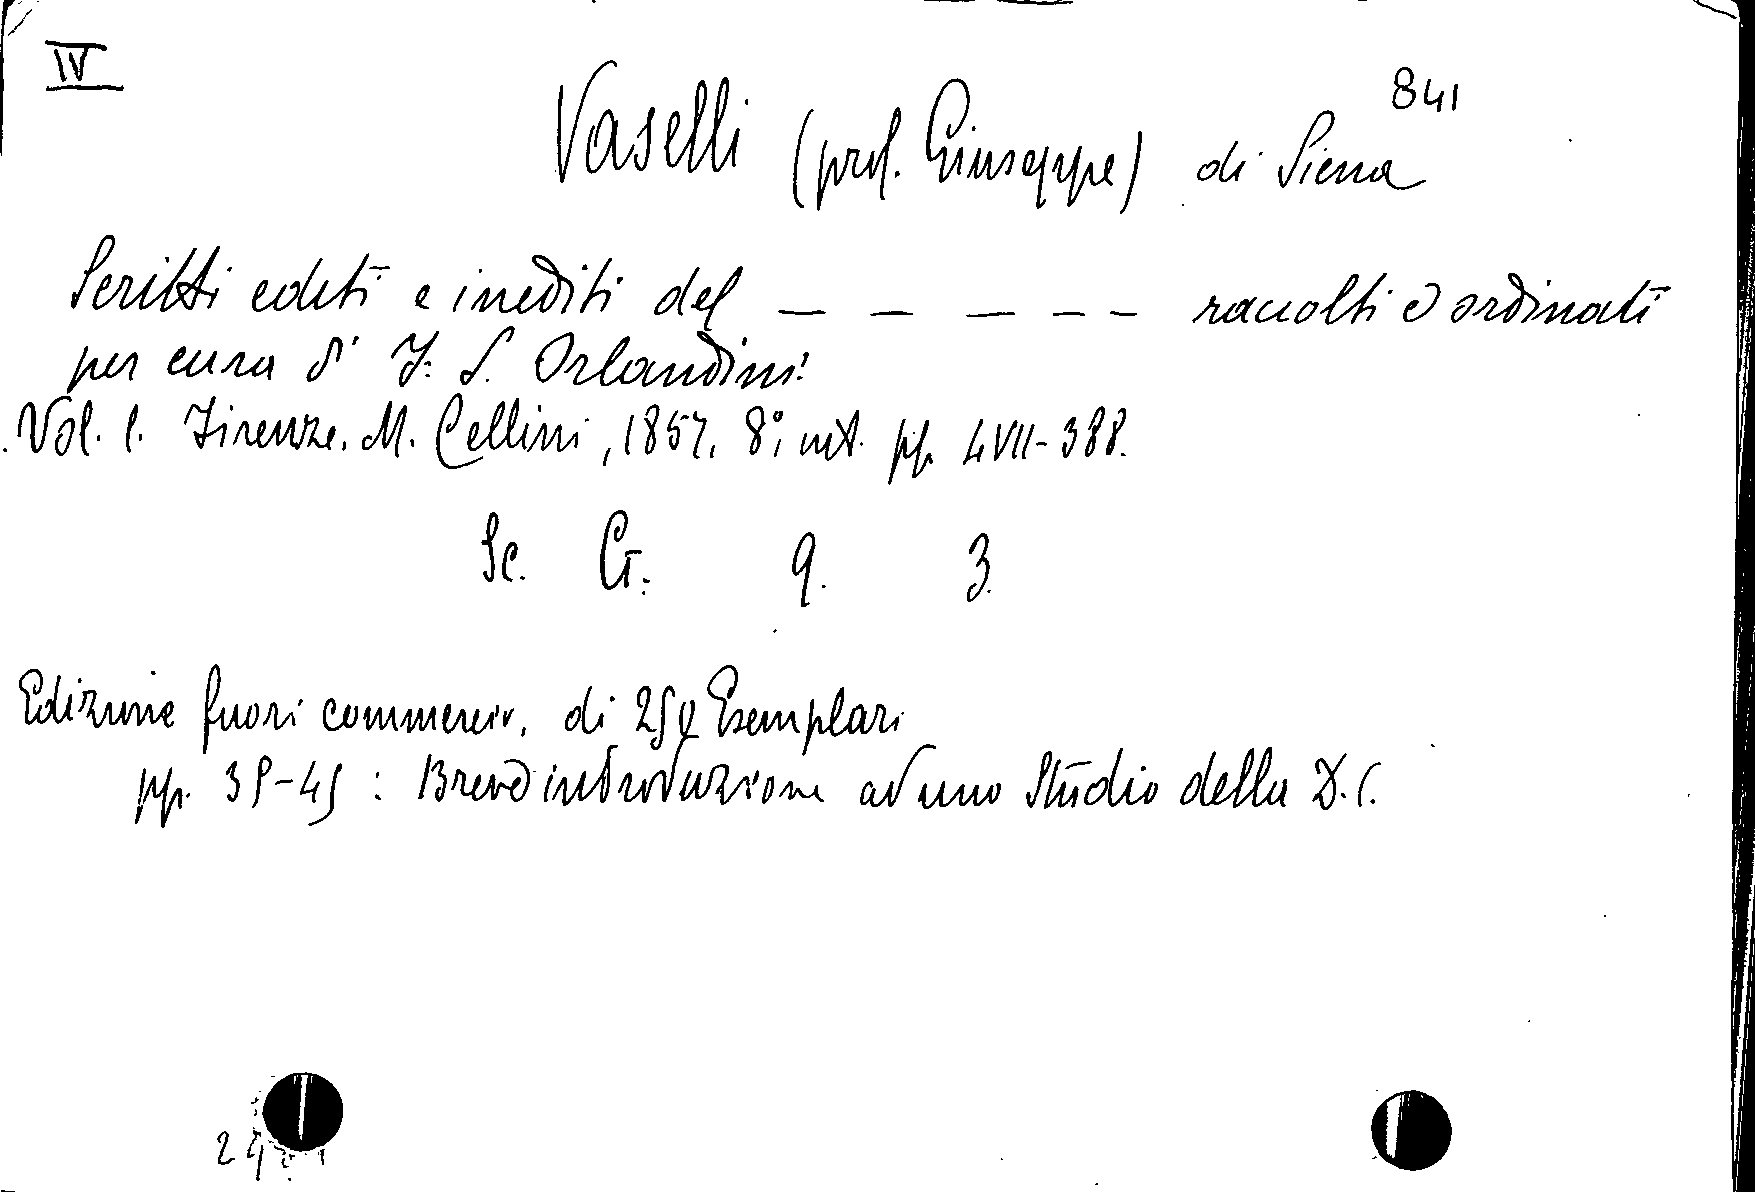 IV
841
Vaselli (prof. Giuseppe) di Siena
Scritti editi e inediti del — — — — — raccolti e ordinati
per cura di F. S. Orlandini
Vol. I. Firenze. M. Cellini, 1857. 8°, rit. pp. LVII-388.
Sc. G. 9. 3
Edizione fuori commercio. di 250 Esemplari
pp. 35-45 : Breve introduzione ad uno studio della D.C.